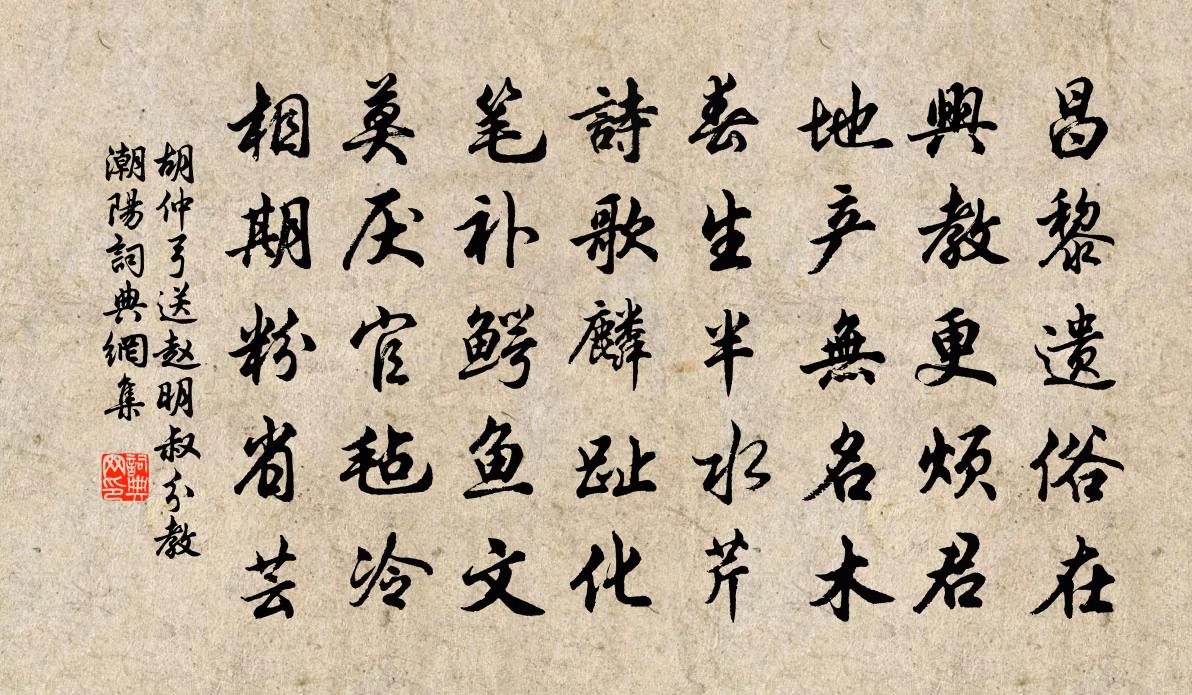 昌黎遗俗在
興教更烦君
地产無名木
春生半水芹
詩歌麟趾化
笔补鳄鱼文
莫厌官毡冷
相期粉省芸
胡仲弓送赵明叔分教
潮陽詞典網集
詞典网印